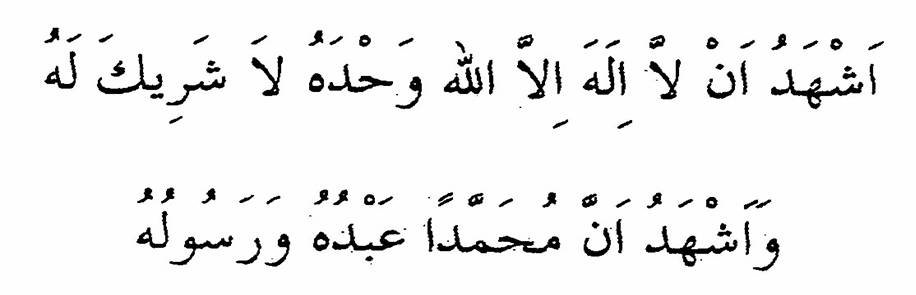 اَشْهَدُ اَنْ لاَّ اِلَهَ اِلاَّ الله وَحْدَهُ لاَ شَرِيكَ لَهُ
وَاَشْهَدُ اَنَّ مُحَمَّدًا عَبْدُهُ وَرَسُولُهُ